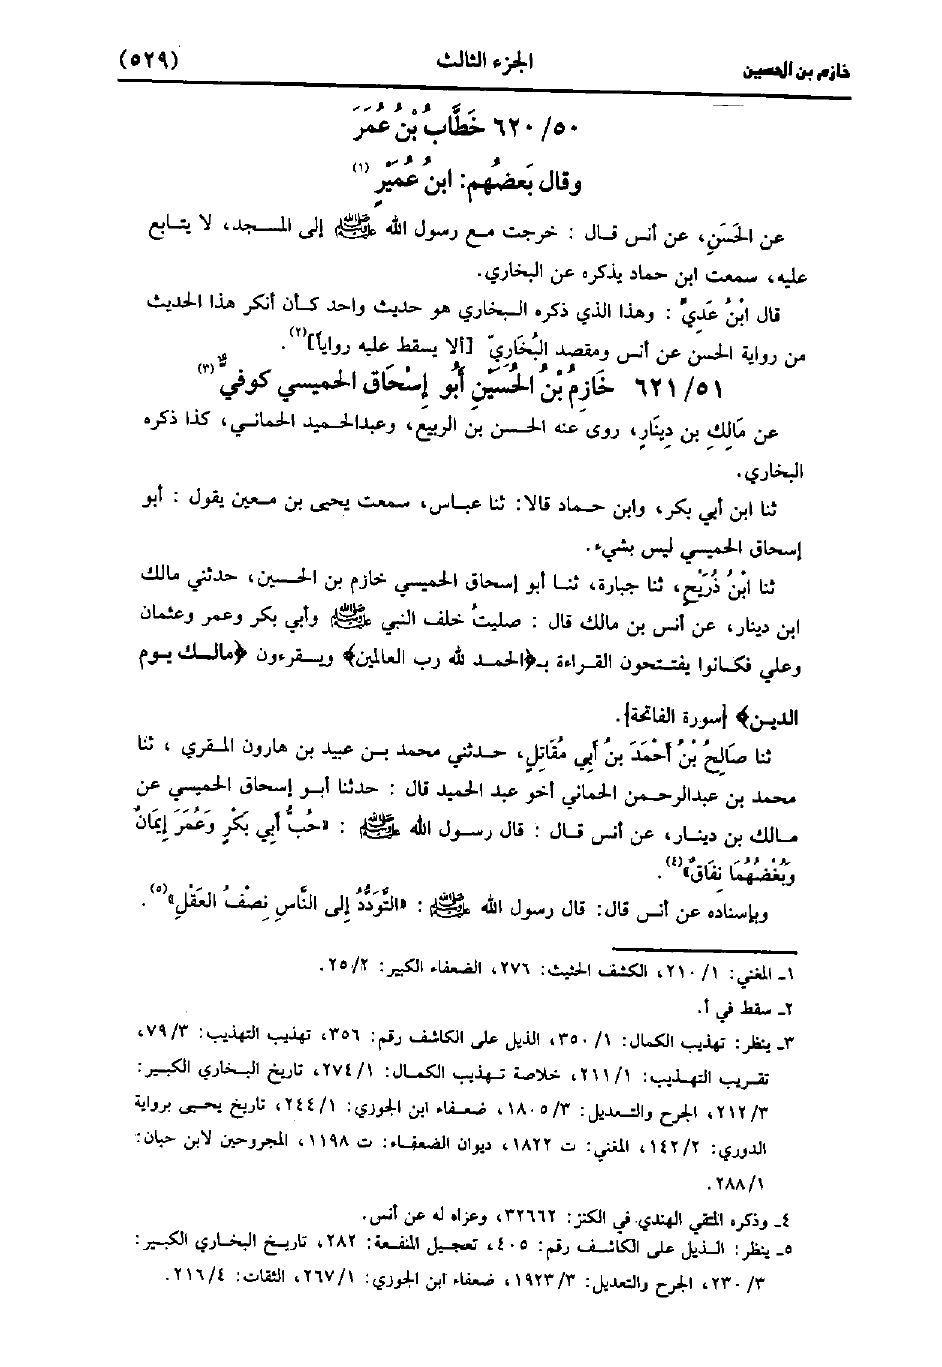 خازم بن الحسين الجزء الثالث (٥٢٩)
٦٢٠/٥٠ خَطَّابُ بْنُ عُمَرَ
وقال بَعضُهم: ابنُ عُمَيْرٍ (١)
عن الحَسَنِ، عن أنس قال : خرجت مع رسول الله ﷺ إلى المسجد، لا يتابع
عليه، سمعت ابن حماد يذكره عن البخاري.
قال ابْنُ عَدِيٍّ : وهذا الذي ذكره البخاري هو حديث واحد كأن أنكر هذا الحديث
من رواية الحسن عن أنس ومقصد البُخَارِيّ [ألا يسقط عليه رواياً](٢).
٦٢١/٥١ خَازِمُ بْنُ الحُسَيْنِ أَبُو إِسْحَاق الحميسي كوفيٌّ (٣)
عن مَالِكِ بن دِينَارٍ، روى عنه الحسن بن الربيع، وعبدالحميد الحماني، كذا ذكره
البخاري.
ثنا ابن أبي بكر، وابن حماد قالا: ثنا عباس، سمعت يحيى بن معين يقول : أبو
إسحاق الحميسي ليس بشيء.
ثنا ابْنُ ذُرَيْحٍ، ثنا جبارة، ثنا أبو إسحاق الحميسي خازم بن الحسين، حدثني مالك
ابن دينار، عن أنس بن مالك قال : صليتُ خلف النبي ﷺ وأبي بكر وعمر وعثمان
وعلي فكانوا يفتتحون القراءة بـ﴿الحمد لله رب العالمين﴾ ويقرءون ﴿مالك يوم
الدين﴾ [سورة الفاتحة].
ثنا صَالِحُ بْنُ أَحْمَدَ بنُ أَبِي مُقَاتِلٍ، حدثني محمد بن عبيد بن هارون المقري ، ثنا
محمد بن عبدالرحمن الحماني أخو عبد الحميد قال : حدثنا أبو إسحاق الحميسي عن
مالك بن دينار، عن أنس قال : قال رسول الله ﷺ : «حُبُّ أَبِي بَكْرٍ وَعُمَرَ إِيمَانٌ
وَبُغْضُهُمَا نِفَاقٌ»(٤).
وبإسناده عن أنس قال: قال رسول الله ﷺ : «التَّوَدُّدُ إِلى النَّاسِ نِصْفُ العَقْلِ»(٥).
١ـ المغني: ٢١٠/١، الكشف الحثيث: ٢٧٦، الضعفاء الكبير: ٢٥/٢.
٢ـ سقط في أ.
٣ـ ينظر: تهذيب الكمال: ٣٥٠/١، الذيل على الكاشف رقم: ٣٥٦، تهذيب التهذيب: ٧٩/٣،
تقريب التهذيب: ٢١١/١، خلاصة تهذيب الكمال: ٢٧٤/١، تاريخ البخاري الكبير:
٢١٢/٣، الجرح والتعديل: ١٨٠٥/٣، ضعفاء ابن الجوزي: ٢٤٤/١، تاريخ يحيى برواية
الدوري: ١٤٢/٢، المغني: ت ١٨٢٢، ديوان الضعفاء: ت ١١٩٨، المجروحين لابن حبان:
٢٨٨/١.
٤ـ وذكره المتقي الهندي في الكنز: ٣٢٦٦٢، وعزاه له عن أنس.
٥ـ ينظر: الذيل على الكاشف رقم: ٤٠٥، تعجيل المنفعة: ٢٨٢، تاريخ البخاري الكبير:
٢٣٠/٣، الجرح والتعديل: ١٩٢٣/٣، ضعفاء ابن الجوزي: ٢٦٧/١، الثقات: ٢١٦/٤.